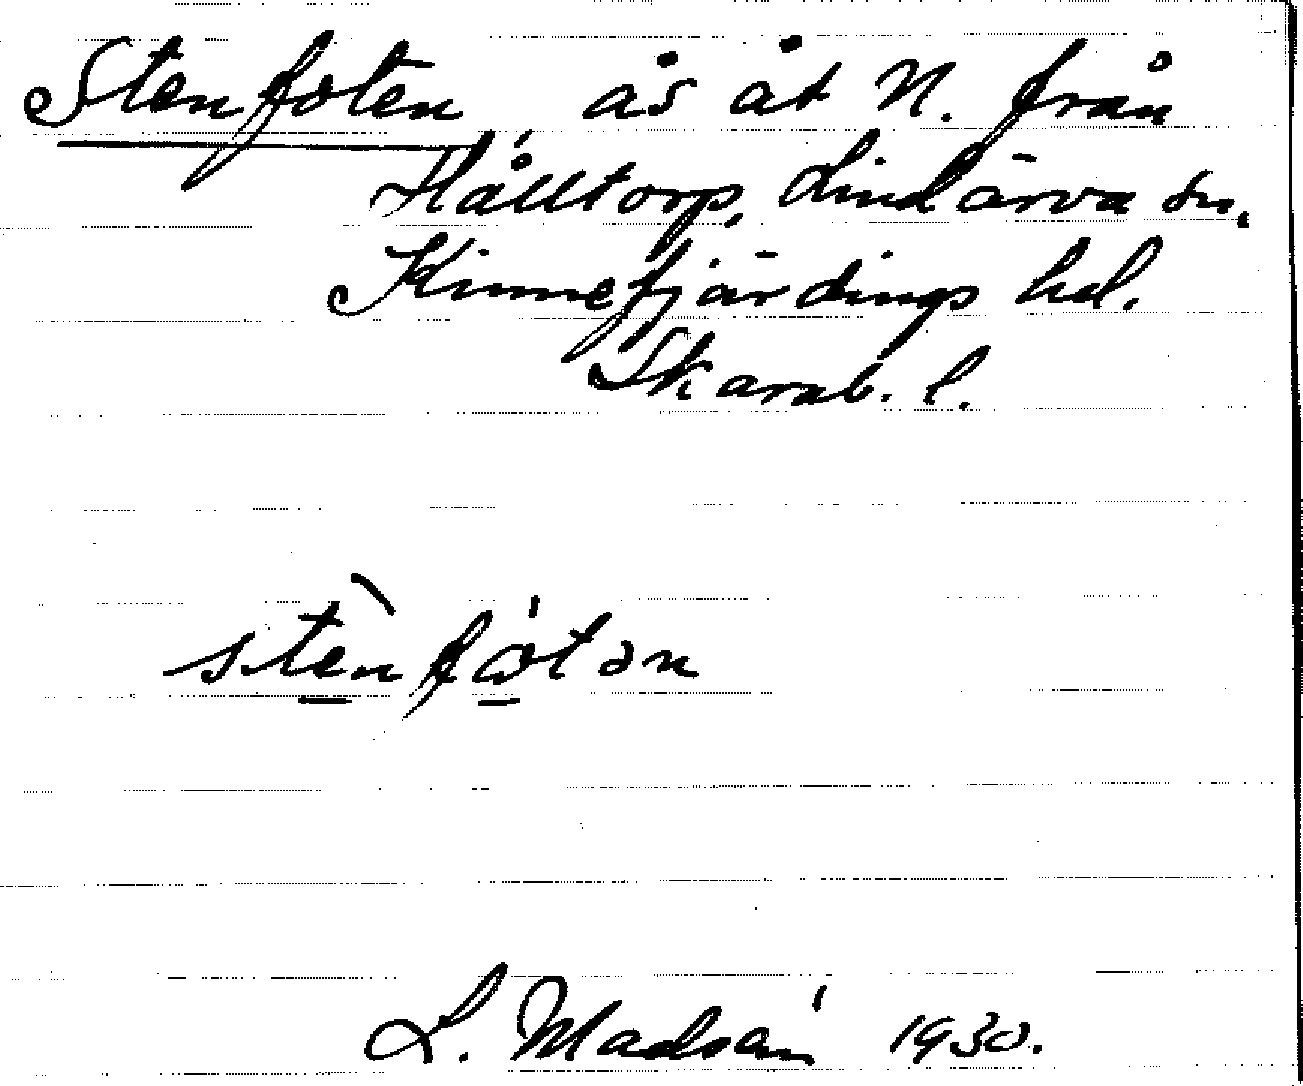 Stenfoten, ås åt N. från
Hålltorp, Lindärva sn,
Kinnefjärdings hd.
Skarab. l.
stènfωtən
L. Madsén 1930.